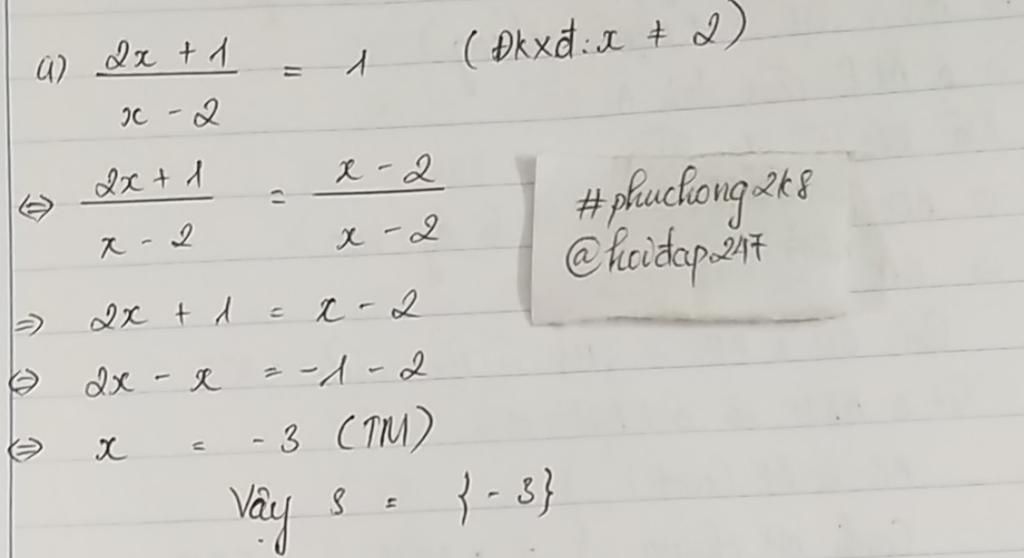 a) (2x + 1)/(x - 2) = 1 (Đkxđ: x ≠ 2)
⇔ (2x + 1)/(x - 2) = (x - 2)/(x - 2)
#phuchong2k8
@hoidap247
⇒ 2x + 1 = x - 2
⇔ 2x - x = -1 - 2
⇔ x = -3 (TM)
Vậy S = {-3}